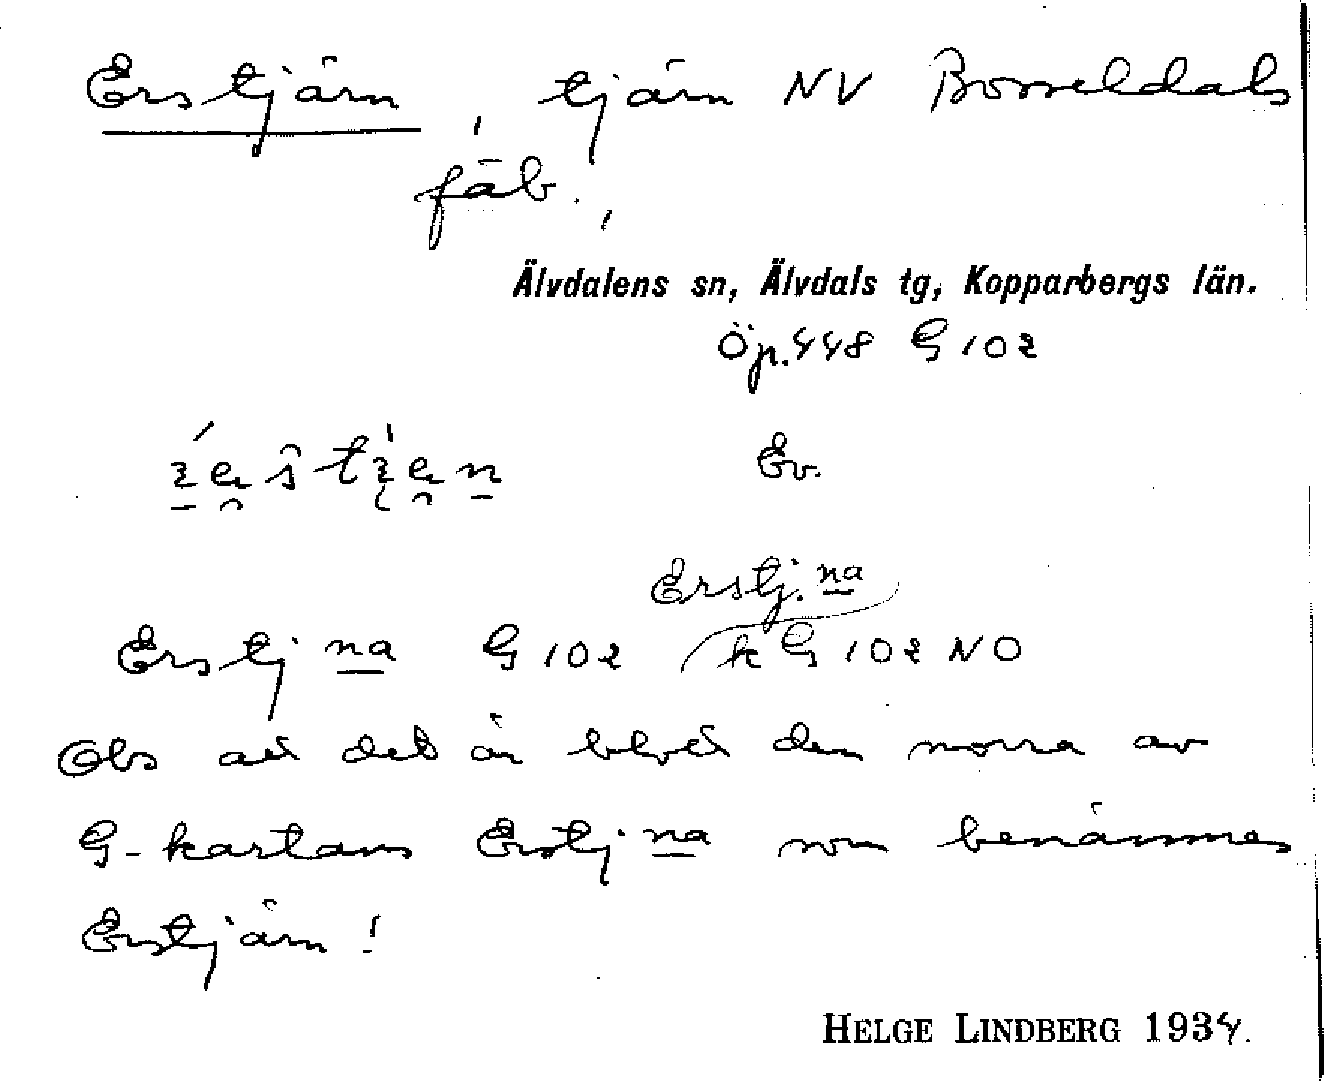 Erstjärn, tjärn NV Borreldals
fäb.,
Älvdalens sn, Älvdals tg, Kopparbergs län.
Öp. 448 G 102
Ev.
Erstj. na
Erstj na G 102 k G 102 NO
Obs att det är blott den norra av
G-kartans Erstj na som benämnes
Erstjärn!
HELGE LINDBERG 1934.